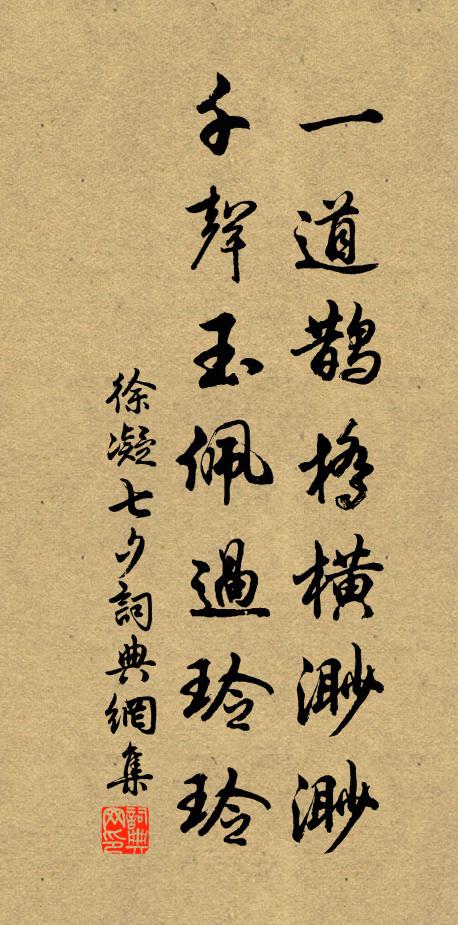 一道鵲橋橫渺渺
千聲玉佩過玲玲
徐凝七夕詞典網集
詞典網印